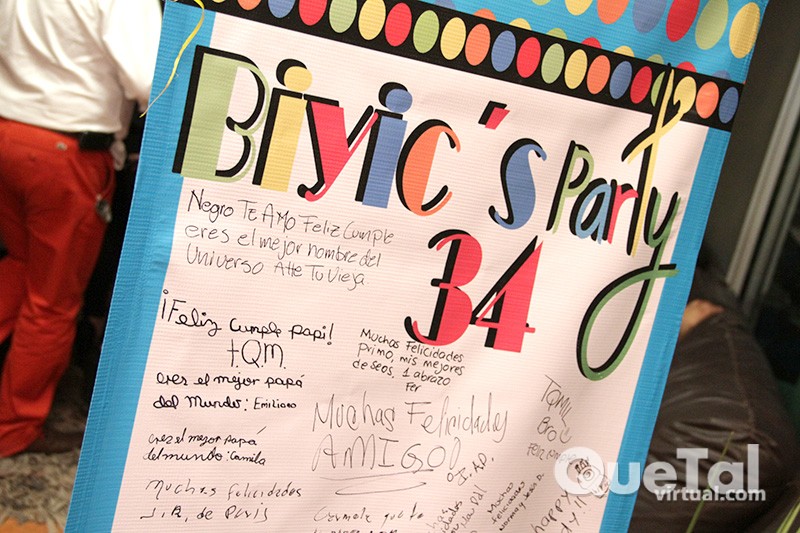 Biyic's Party
34
Negro Te Amo Feliz Cumple
eres el mejor hombre del
Universo Atte Tu Vieja
¡Feliz cumple papi!
t.Q.M.
eres el mejor papá
del Mundo: Emiliano
eres el mejor papá
del mundo: Camila
Muchas felicidades
J.R. de París
Muchas Felicidades
primo, mis mejores
deseos. 1 abrazo
Fer
Muchas Felicidades
AMIGO!
J. A.D.
TQM
Bro
Feliz
Muchas
felicidades
Happy
QueTal
virtual.com